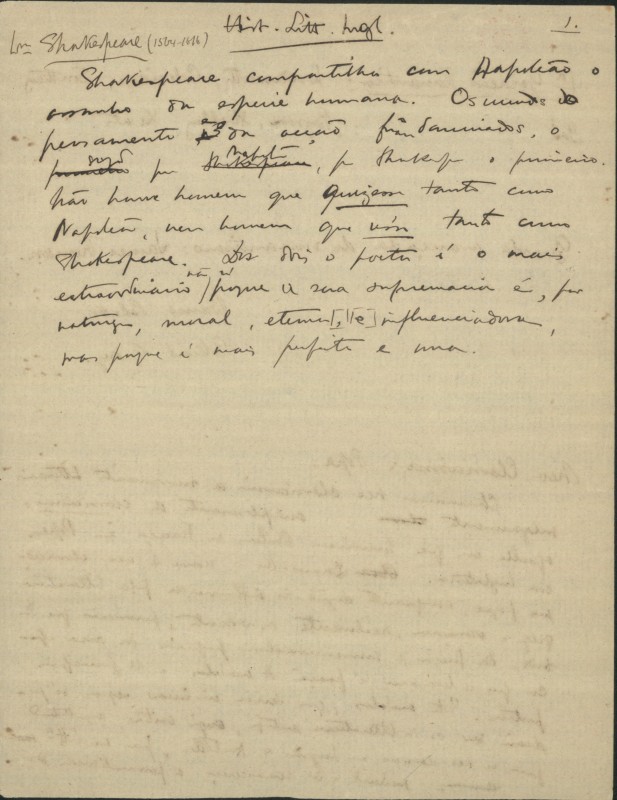 Hist. Litt. Ingl.
1.
Shakespeare (1564-1616)
Shakespeare compartilha com Napoleão o
assombro da especie humana. Os mundos do
pensamento e da acção foram dominados, o
segdo por Shakespeare, por Shakesp o primeiro.
Não houve homem que quizesse tanto como
Napoleão, nem homem que visse tanto como
Shakespeare. Dos dois o poeta é o mais
extraordinario, não só porque a sua supremacia é, por
natureza, moral, eterna[,] [e] influenciadora,
mas porque é mais perfeita e una.